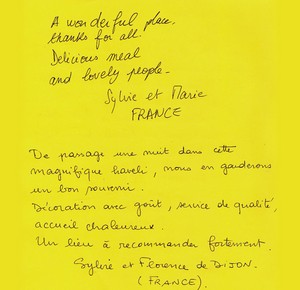 A wonderful place.
thanks for all!
Delicious meal
and lovely people_
Sylvie et Marie
FRANCE
De passage une nuit dans cette
magnifique haveli, nous en garderons
un bon souvenir.
Décoration avec goût, service de qualité,
accueil chaleureux.
Un lieu à recommander fortement.
Sylvie et Florence de DIJON.
(FRANCE).